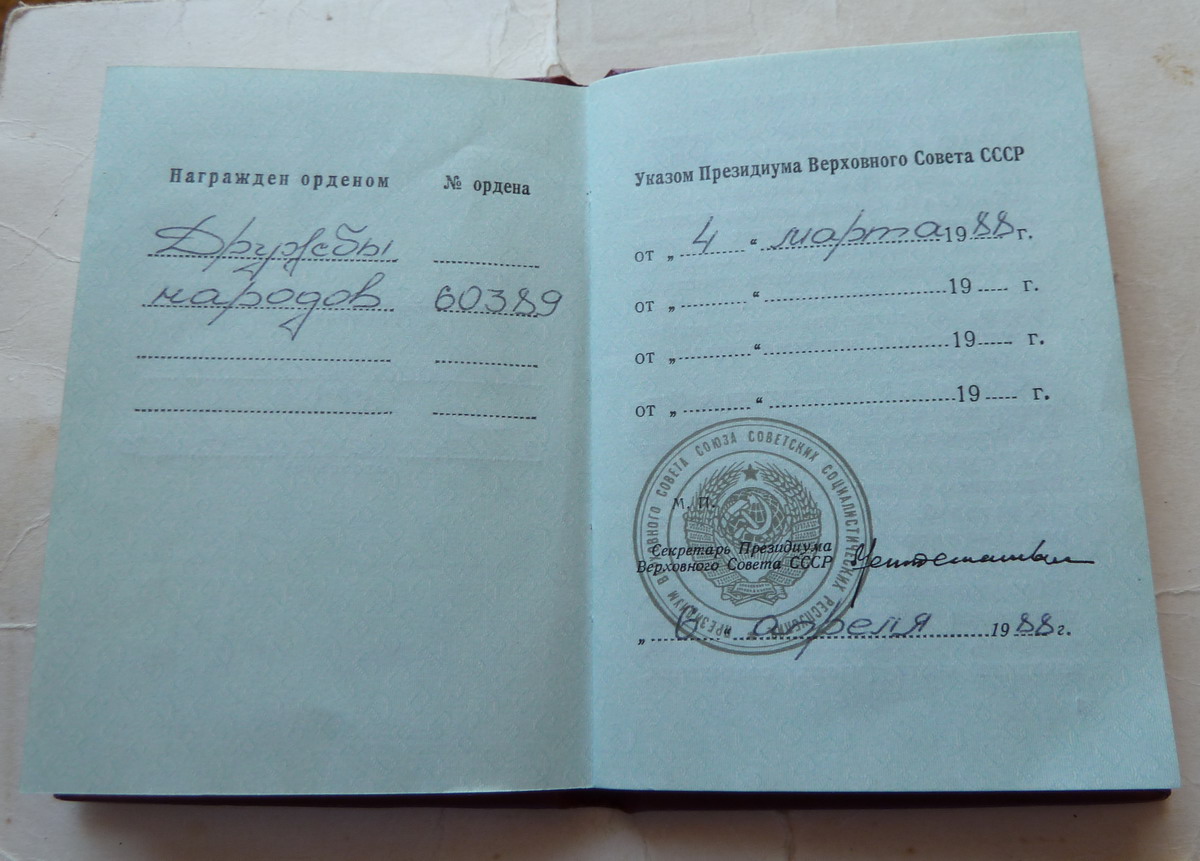 Награжден орденом № ордена
Дружбы
народов 60389
Указом Президиума Верховного Совета СССР
от „ 4 “ марта 1988 г.
от „ “ 19 г.
от „ “ 19 г.
от „ “ 19 г.
ПРЕЗИДИУМ ВЕРХОВНОГО СОВЕТА СОЮЗА СОВЕТСКИХ СОЦИАЛИСТИЧЕСКИХ РЕСПУБЛИК
М. П.
Секретарь Президиума
Верховного Совета СССР
„ 6 “ апреля 1988 г.